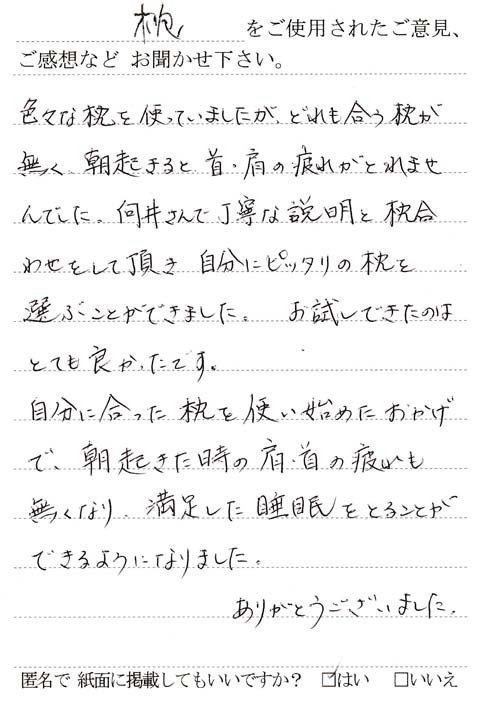 枕 をご使用されたご意見、
ご感想など お聞かせ下さい。
色々な枕を使っていましたが、どれも合う枕が
無く、朝起きると首・肩の疲れがとれませ
んでした。向井さんで丁寧な説明と枕合
わせをして頂き 自分にピッタリの枕を
選ぶことができました。 お試しできたのは
とても良かったです。
自分に合った枕を使い始めたおかげ
で、朝起きた時の肩・首の疲れも
無くなり、満足した睡眠をとることが
できるようになりました。
ありがとうございました。
匿名で 紙面に掲載してもいいですか? ☑はい □いいえ